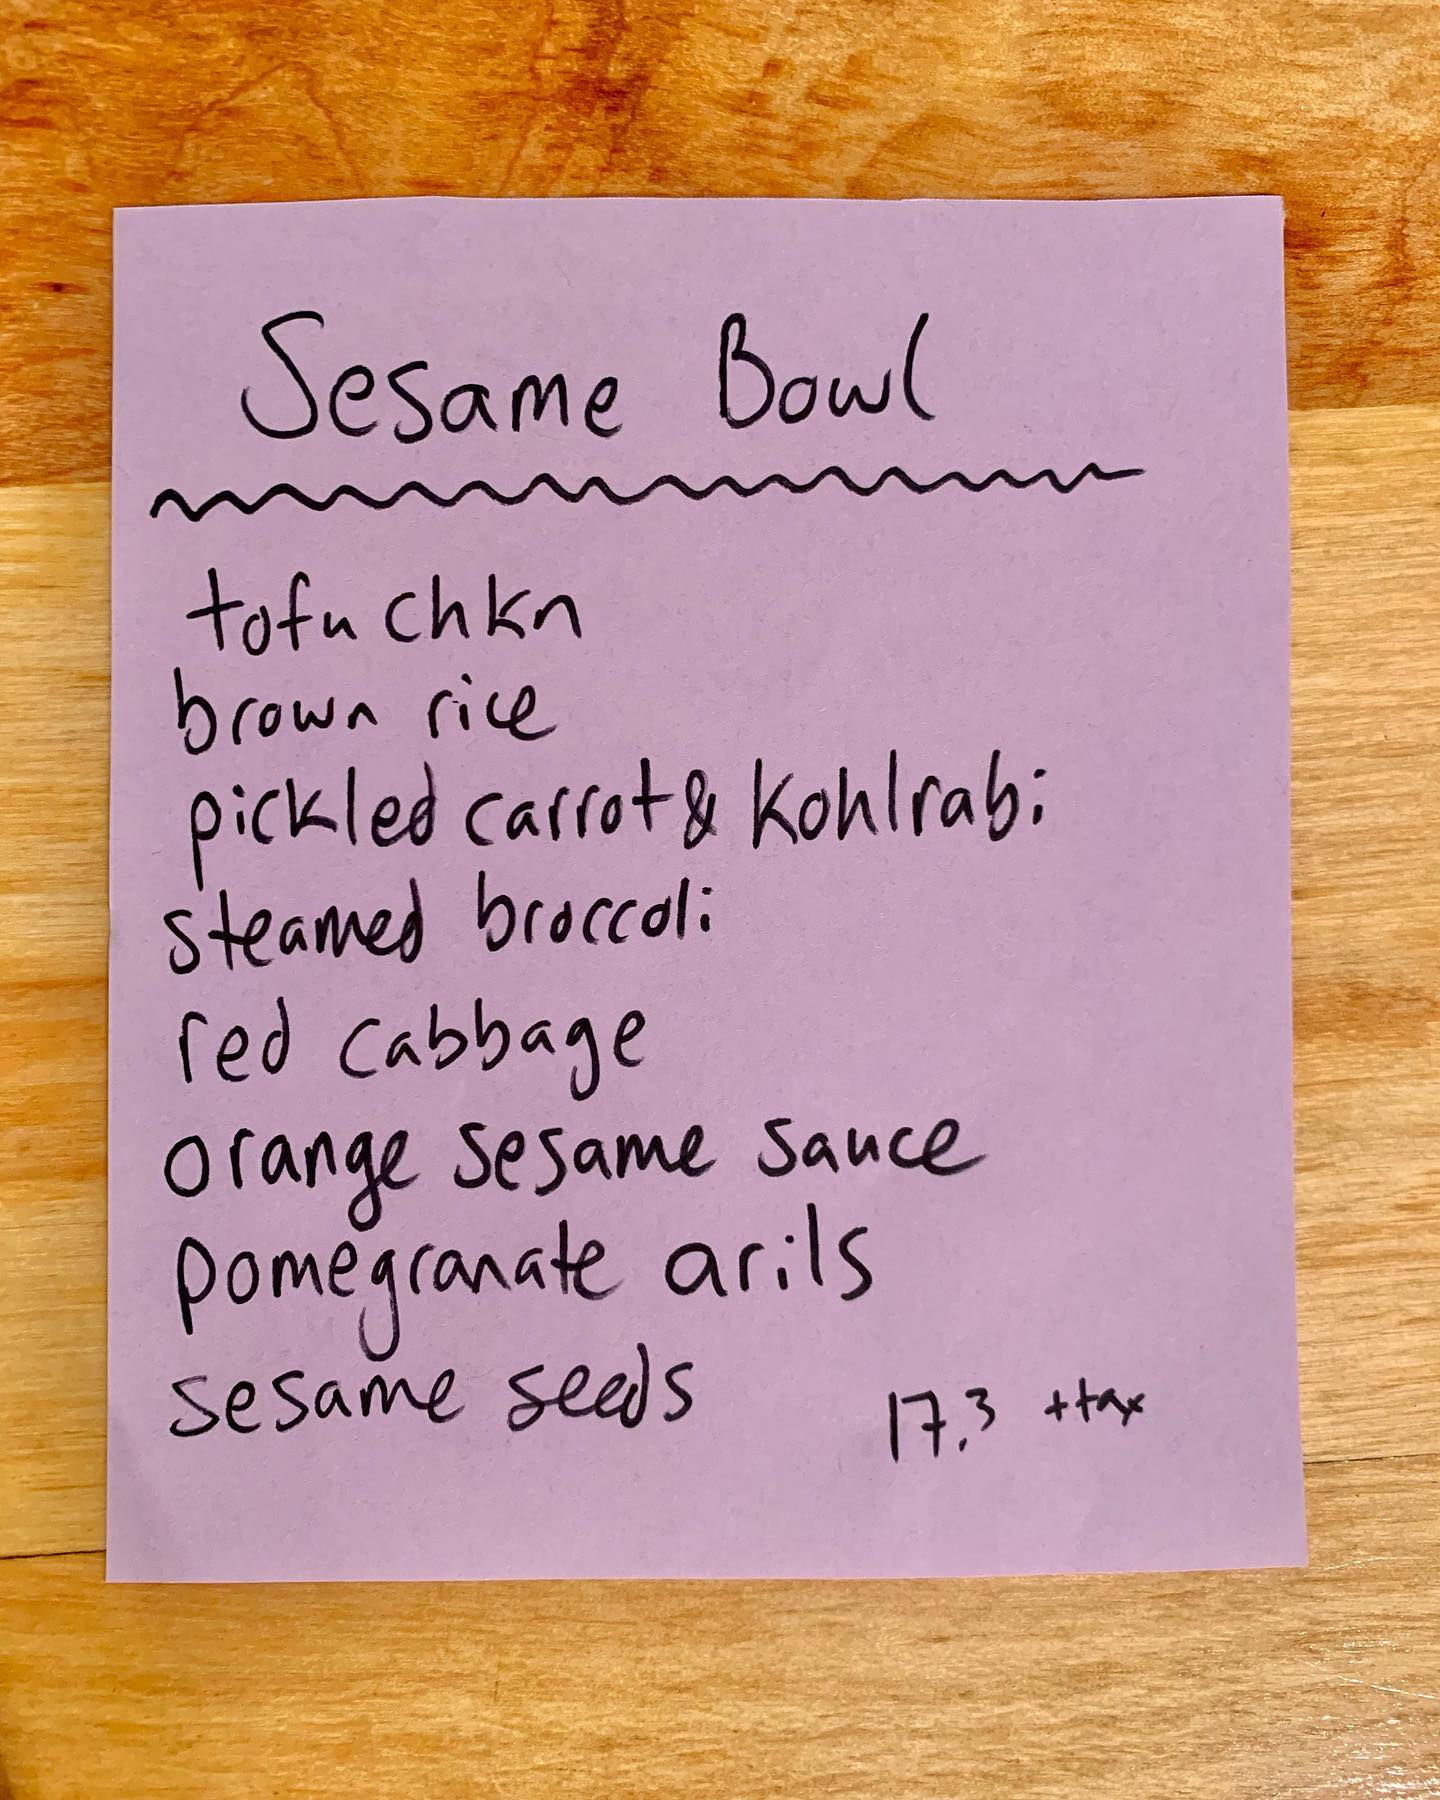 Sesame Bowl
tofu chkn
brown rice
pickled carrot & kohlrabi
steamed broccoli
red cabbage
orange sesame sauce
pomegranate arils
sesame seeds
17.3 + tax